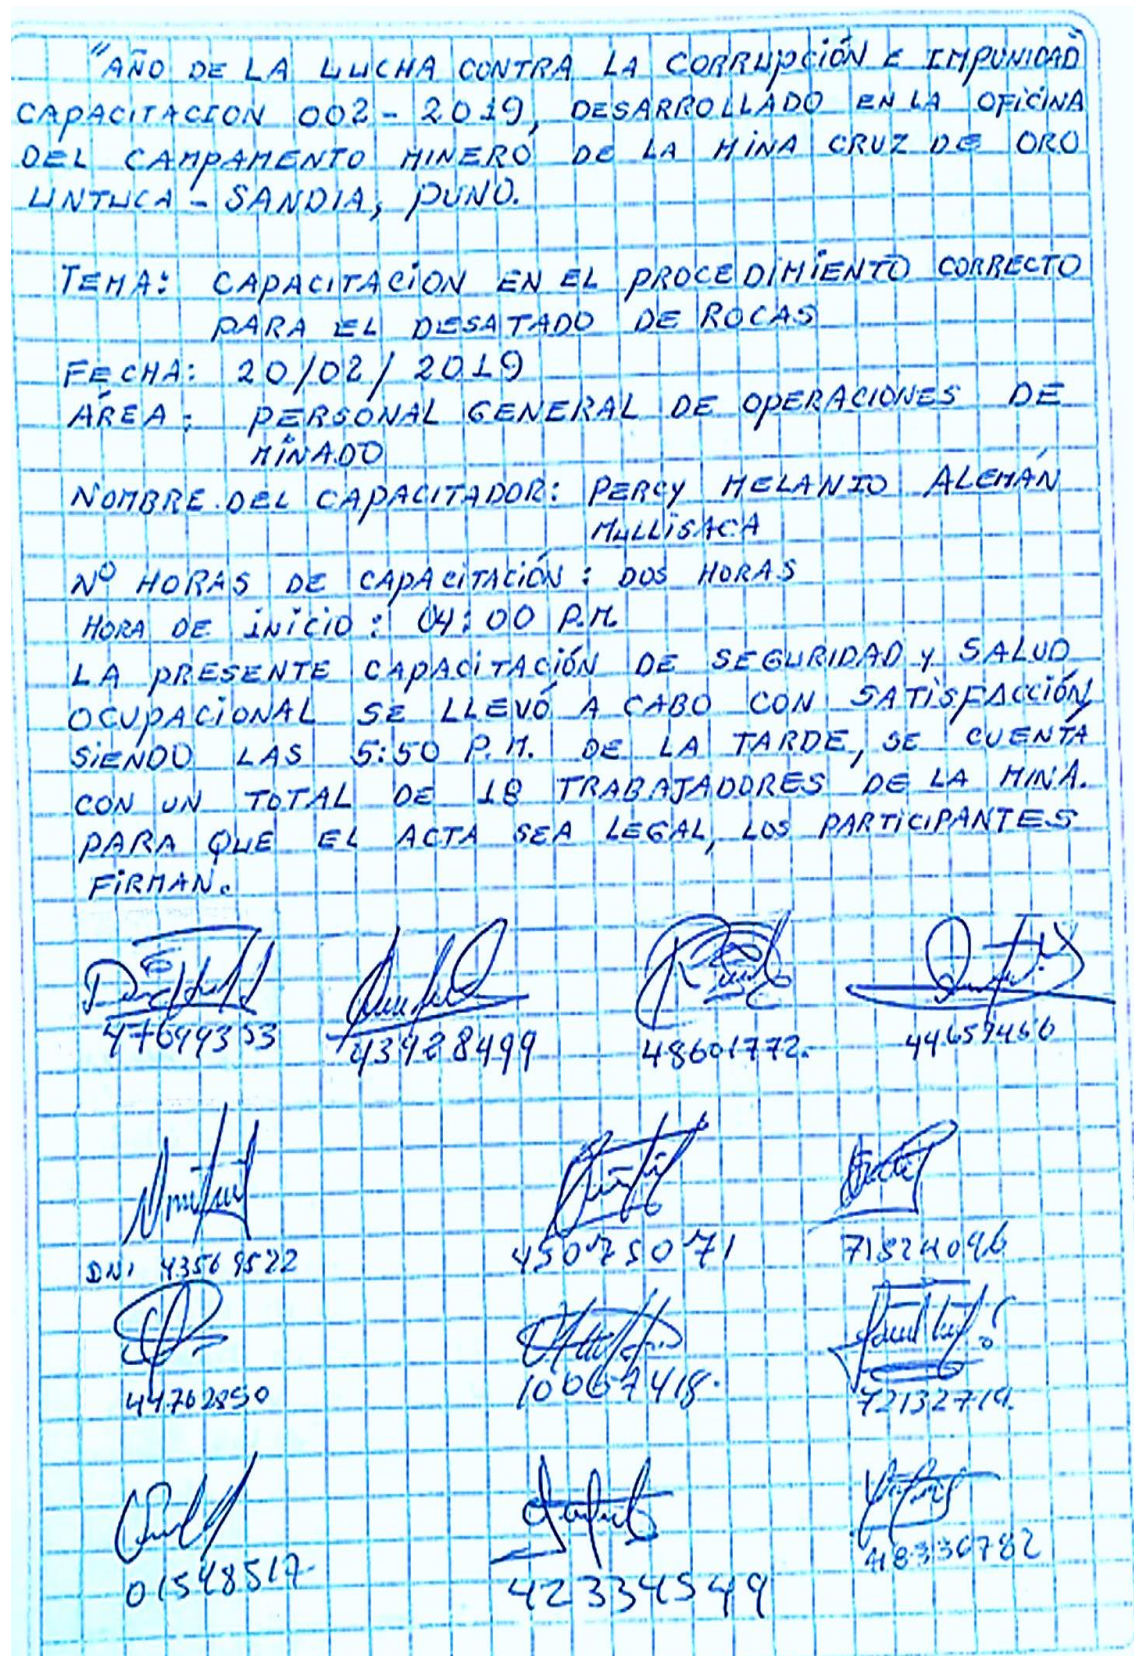 "AÑO DE LA LUCHA CONTRA LA CORRUPCIÓN E IMPUNIDAD
CAPACITACION 002 - 2019, DESARROLLADO EN LA OFICINA
DEL CAMPAMENTO MINERO DE LA MINA CRUZ DE ORO
UNTUCA - SANDIA, PUNO.
TEMA: CAPACITACION EN EL PROCEDIMIENTO CORRECTO
PARA EL DESATADO DE ROCAS
FECHA: 20/02/2019
ÁREA: PERSONAL GENERAL DE OPERACIONES DE
MINADO
NOMBRE DEL CAPACITADOR: PERCY MELANIO ALEMÁN
MULLISACA
Nº HORAS DE CAPACITACIÓN: DOS HORAS
HORA DE INICIO: 04:00 P.M.
LA PRESENTE CAPACITACIÓN DE SEGURIDAD Y SALUD
OCUPACIONAL SE LLEVÓ A CABO CON SATISFACCIÓN
SIENDO LAS 5:50 P.M. DE LA TARDE, SE CUENTA
CON UN TOTAL DE 18 TRABAJADORES DE LA MINA.
PARA QUE EL ACTA SEA LEGAL, LOS PARTICIPANTES
FIRMAN.
43928499 48601772. 44659466
DNI 43569522 45075071
44762850 72132714.
01548517 42334549 48336782